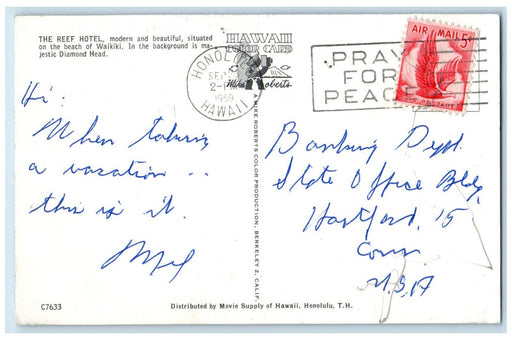 THE REEF HOTEL, modern and beautiful, situated
on the beach of Waikiki. In the background is ma-
jestic Diamond Head.
HAWAII
COLOR CARD
Mike Roberts
HONOLULU
SEP
2-PM
1959
HAWAII
PRAY
FOR
PEACE
AIR MAIL 5¢
U.S. POSTAGE
Hi:
When taking
a vacation ..
this is it.
Mel
A MIKE ROBERTS COLOR PRODUCTION, BERKELEY 2, CALIF.
Banking Dept.
State Office Bldg,
Hartford, 15
Conn
U.S.A
C7633
Distributed by Movie Supply of Hawaii, Honolulu, T.H.